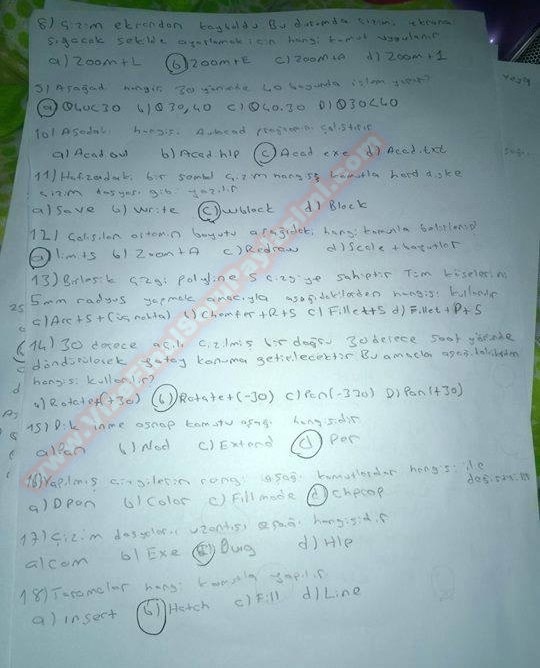 8) Çizim ekrandan kayboldu Bu durumda çizimi ekrana
sığacak şekilde ayarlamak için hangi komut uygulanır
a) Zoom+L b) Zoom+E c) Zoom+A d) Zoom+1
9) Aşağıd. hangisi 30 yönünde 40 boyunda işlem yapar?
a) @40<30 b) @30,40 c) @40.30 D) @30<40
10) Aşadaki hangisi Autocad programını çalıştırır
a) Acad.out b) Acad.hlp c) Acad.exe d) Acad.txt
11) Hafızadaki bir sembol çizim hangi komutla hard diske
çizim dosyası gibi yazılır
a) Save b) Write c) Wblock d) Block
12) Çalışılan ortamın boyutu aşağıdaki hangi komutla
a) limits b) Zoom+A c) Redraw d) Scale + boyutlar
13) Birleşik çizgi polyline 5 çizgiye sahiptir Tüm köşelerini
5mm radyus yapmak amacıyla aşağıdakilerden hangisi kullanılır
a) Arc+S+(üç nokta) b) Chamfer+R+5 c) Fillet+5 d) Fillet+P+5
14) 30 derece açılı çizilmiş bir doğru 30 derece saat yönünde
döndürülerek yatay konuma getirilecektir Bu amaçla aşağıdakilerden
hangisi kullanılır?
a) Rotate+(+30) b) Rotate+(-30) c) Pan(-330) D) Pan(+30)
15) Dik inme osnap komutu aşağı hangisidir
a) Pan b) Nod c) Extend d) Per
16) Yapılmış çizgilerin rengi aşağı komutlardan hangisi ile
değiştirilir
a) DPan b) Color c) Fillmode d) Chprop
17) Çizim dosyaları uzantısı aşağı hangisidir
a) Com b) Exe c) Dwg d) Hlp
18) Taramalar hangi komutla yapılır
a) insert b) Hatch c) Fill d) Line